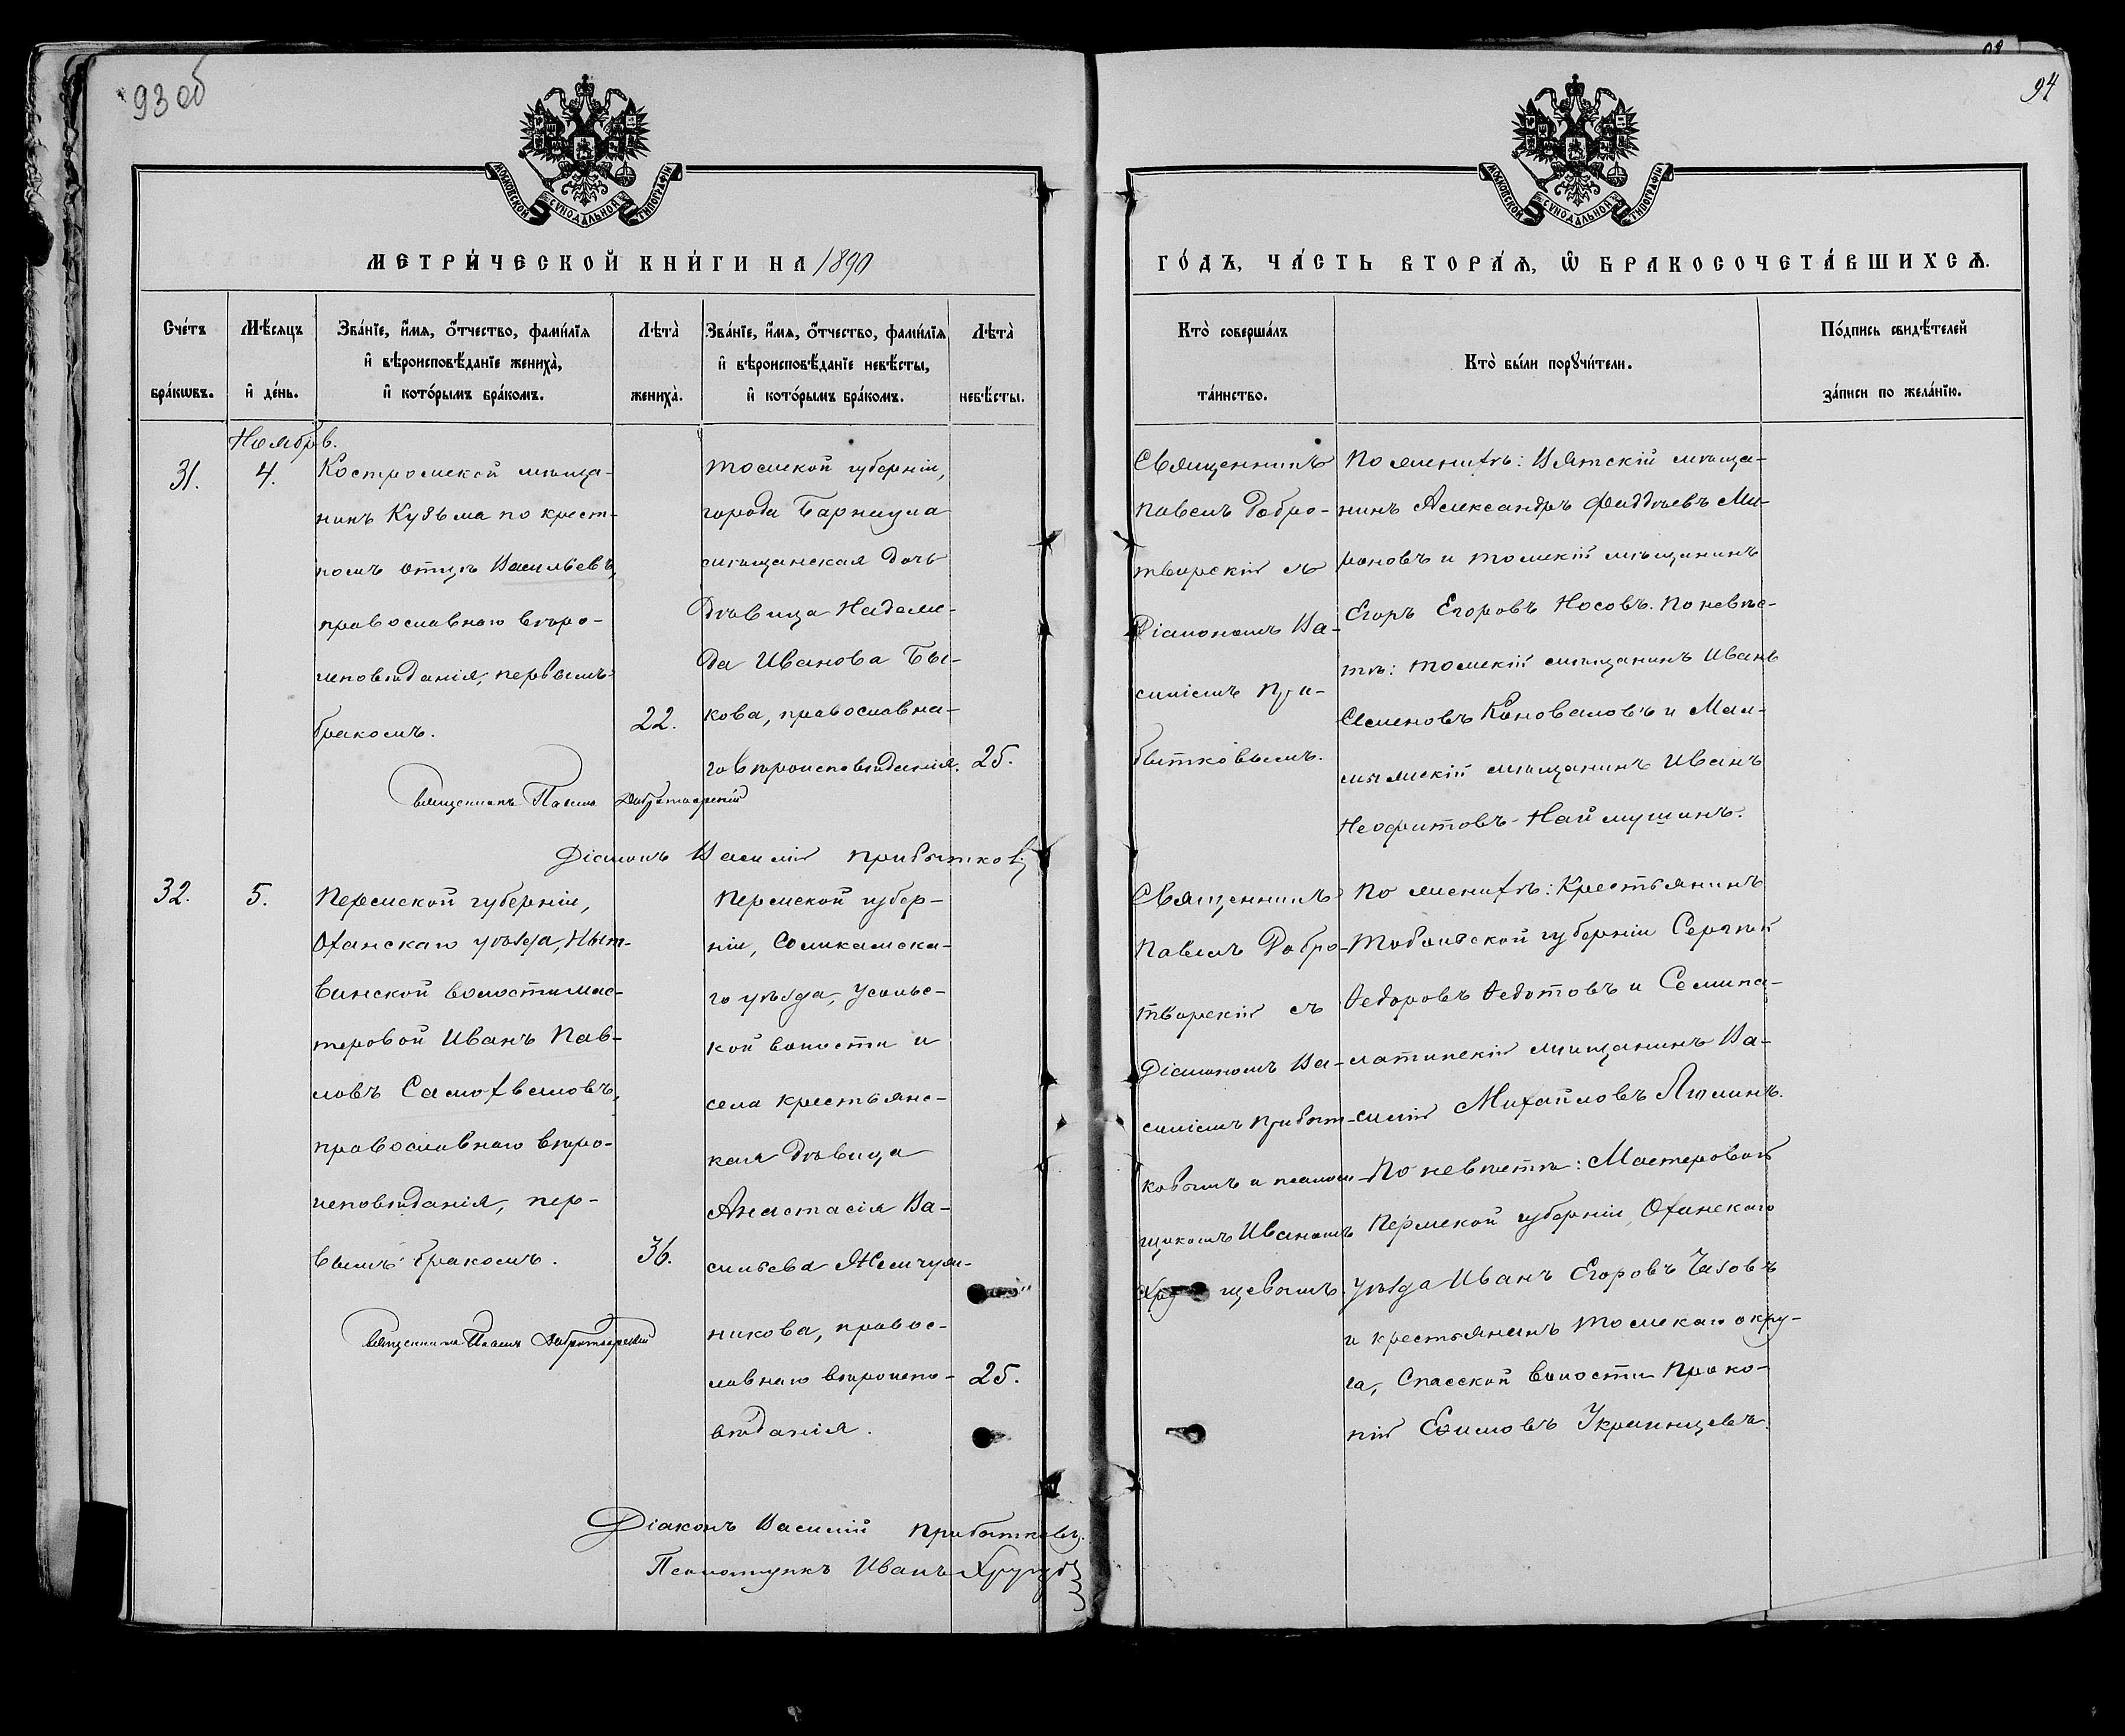 93 об
94
МОСКОВСКОЙ СѴНОДАЛЬНОЙ ТИПОГРАФІИ
МОСКОВСКОЙ СѴНОДАЛЬНОЙ ТИПОГРАФІИ
МЕТРИ́ЧЕСКОЙ КНИ́ГИ НА 1890
ГО́ДЪ, ЧА́СТЬ ВТОРА́Ѧ, Ѡ҆ БРАКОСОЧЕТА́ВШИХСѦ.
Сче́тъ
бра́кѡвъ.
Мѣ́сяцъ
и҆ де́нь.
Зва́нїе, и҆́мѧ, ѻ҆́тчество, фами́лїѧ
и҆ вѣроисповѣ́данїе жениха̀,
и҆ кото́рымъ бра́комъ.
Лѣта̀
жениха̀.
Зва́нїе, и҆́мѧ, ѻ҆́тчество, фами́лїѧ
и҆ вѣроисповѣ́данїе невѣ́сты,
и҆ кото́рымъ бра́комъ.
Лѣта̀
невѣ́сты.
Кто̀ соверша́лъ
та́инство.
Кто̀ бы́ли порꙋчи́тели.
По́дпись свидѣ́телей
за́писи по жела́нїю.
Ноябрь.
31.
4.
Костромской мѣща-
нинъ Кузьма по крест-
номъ отцѣ Васильевъ,
православнаго вѣро-
исповѣданія, первымъ
бракомъ.
22.
Томской губерніи,
города Барнаула
мѣщанская дочь
дѣвица Надеж-
да Иванова Бы-
кова, православна-
го вѣроисповѣданія.
25.
Священникъ
Павелъ Добро-
творскій съ
Діакономъ Ва-
силіемъ При-
бытковымъ.
По женихѣ: Вятскій мѣща-
нинъ Александръ Фаддѣевъ Ми-
роновъ и Томскій мѣщанинъ
Егоръ Егоровъ Носовъ. По невѣс-
тѣ: Томскій мѣщанинъ Иванъ
Семеновъ Коноваловъ и Мал-
мыжскій мѣщанинъ Иванъ
Неофитовъ Наймушинъ.
Священникъ Павелъ Добротворскій
Діаконъ Василій Прибытковъ
32.
5.
Пермской губерніи,
Оханскаго уѣзда, Ныт-
винской волости мас-
теровой Иванъ Пав-
ловъ Самохваловъ,
православнаго вѣро-
исповѣданія, пер-
вымъ бракомъ.
36.
Пермской губер-
ніи, Соликамска-
го уѣзда, Усольс-
кой волости и
села крестьянс-
кая дѣвица
Анастасія Ва-
сильева Жемчуж-
никова, правос-
лавнаго вѣроиспо-
вѣданія.
25.
Священникъ
Павелъ Добро-
творскій съ
Діакономъ Ва-
силіемъ Прибыт-
ковымъ и псалом-
щикомъ Иваномъ
щевымъ.
По женихѣ: Крестьянинъ
Тобольской губерніи Сергѣй
Ѳедоровъ Ѳедотовъ и Семипа-
латинскій мѣщанинъ Ва-
силій Михайловъ Люминъ.
По невѣстѣ: Мастеровой
Пермской губерніи, Оханскаго
уѣзда Иванъ Егоровъ Чазовъ
и крестьянинъ Томскаго окру-
га, Спасской волости Проко-
пій Ефимовъ Украинцевъ.
Священникъ Павелъ Добротворскій
Діаконъ Василій Прибытковъ.
Псаломщикъ Иванъ